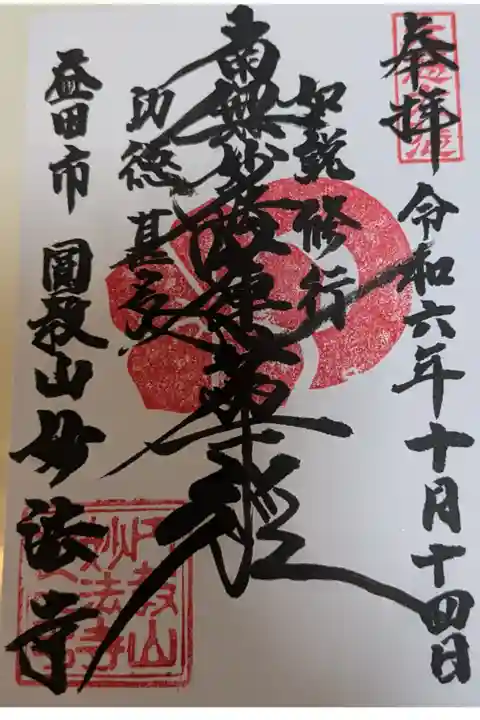 奉拝
令和六年十月十四日
如説修行
南無妙法蓮華経
功徳甚多
益田市
圓教山妙法寺
円教山
妙法寺